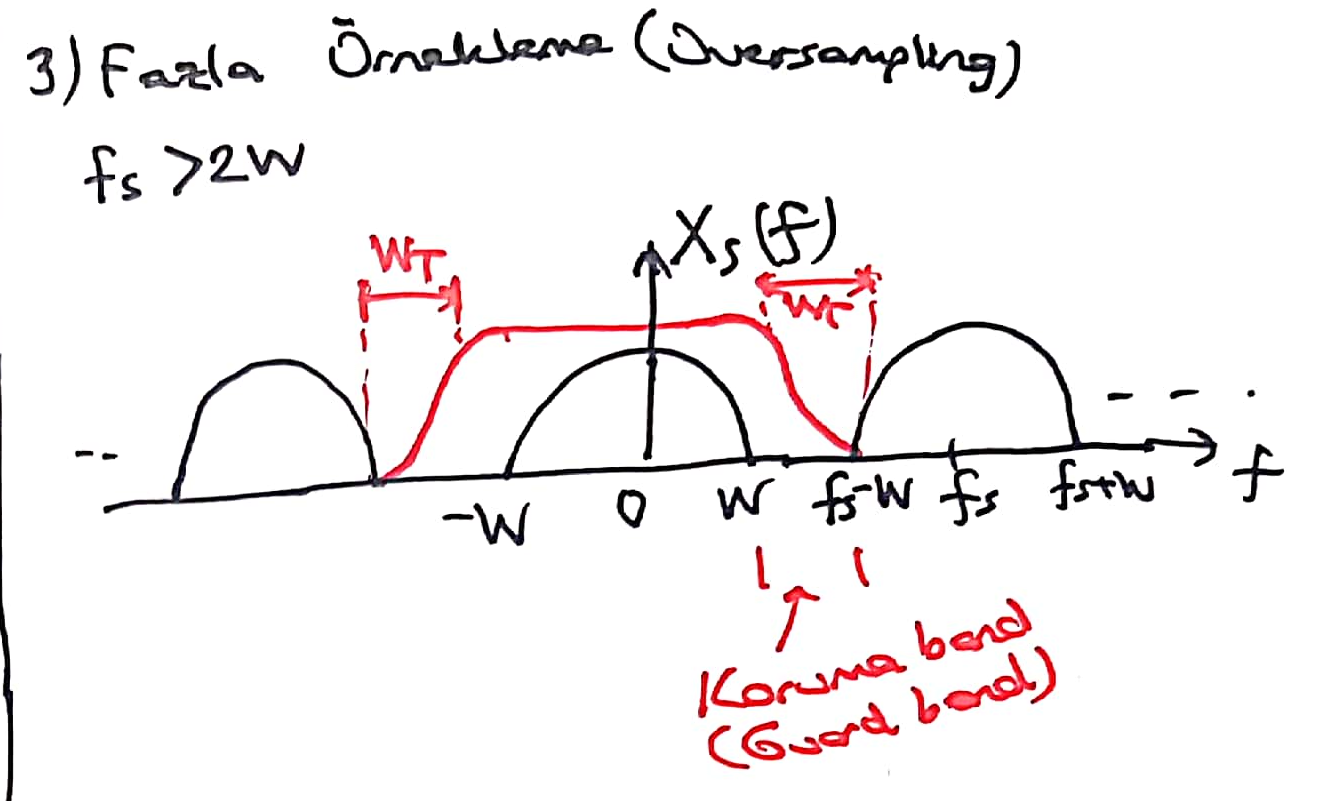 3) Fazla Örnekleme (Oversampling)
fs >2W
WT
Xs (f)
WT
-- 
- - .
-W 0 W fs-W fs fs+W f
Koruma band
(Guard band)